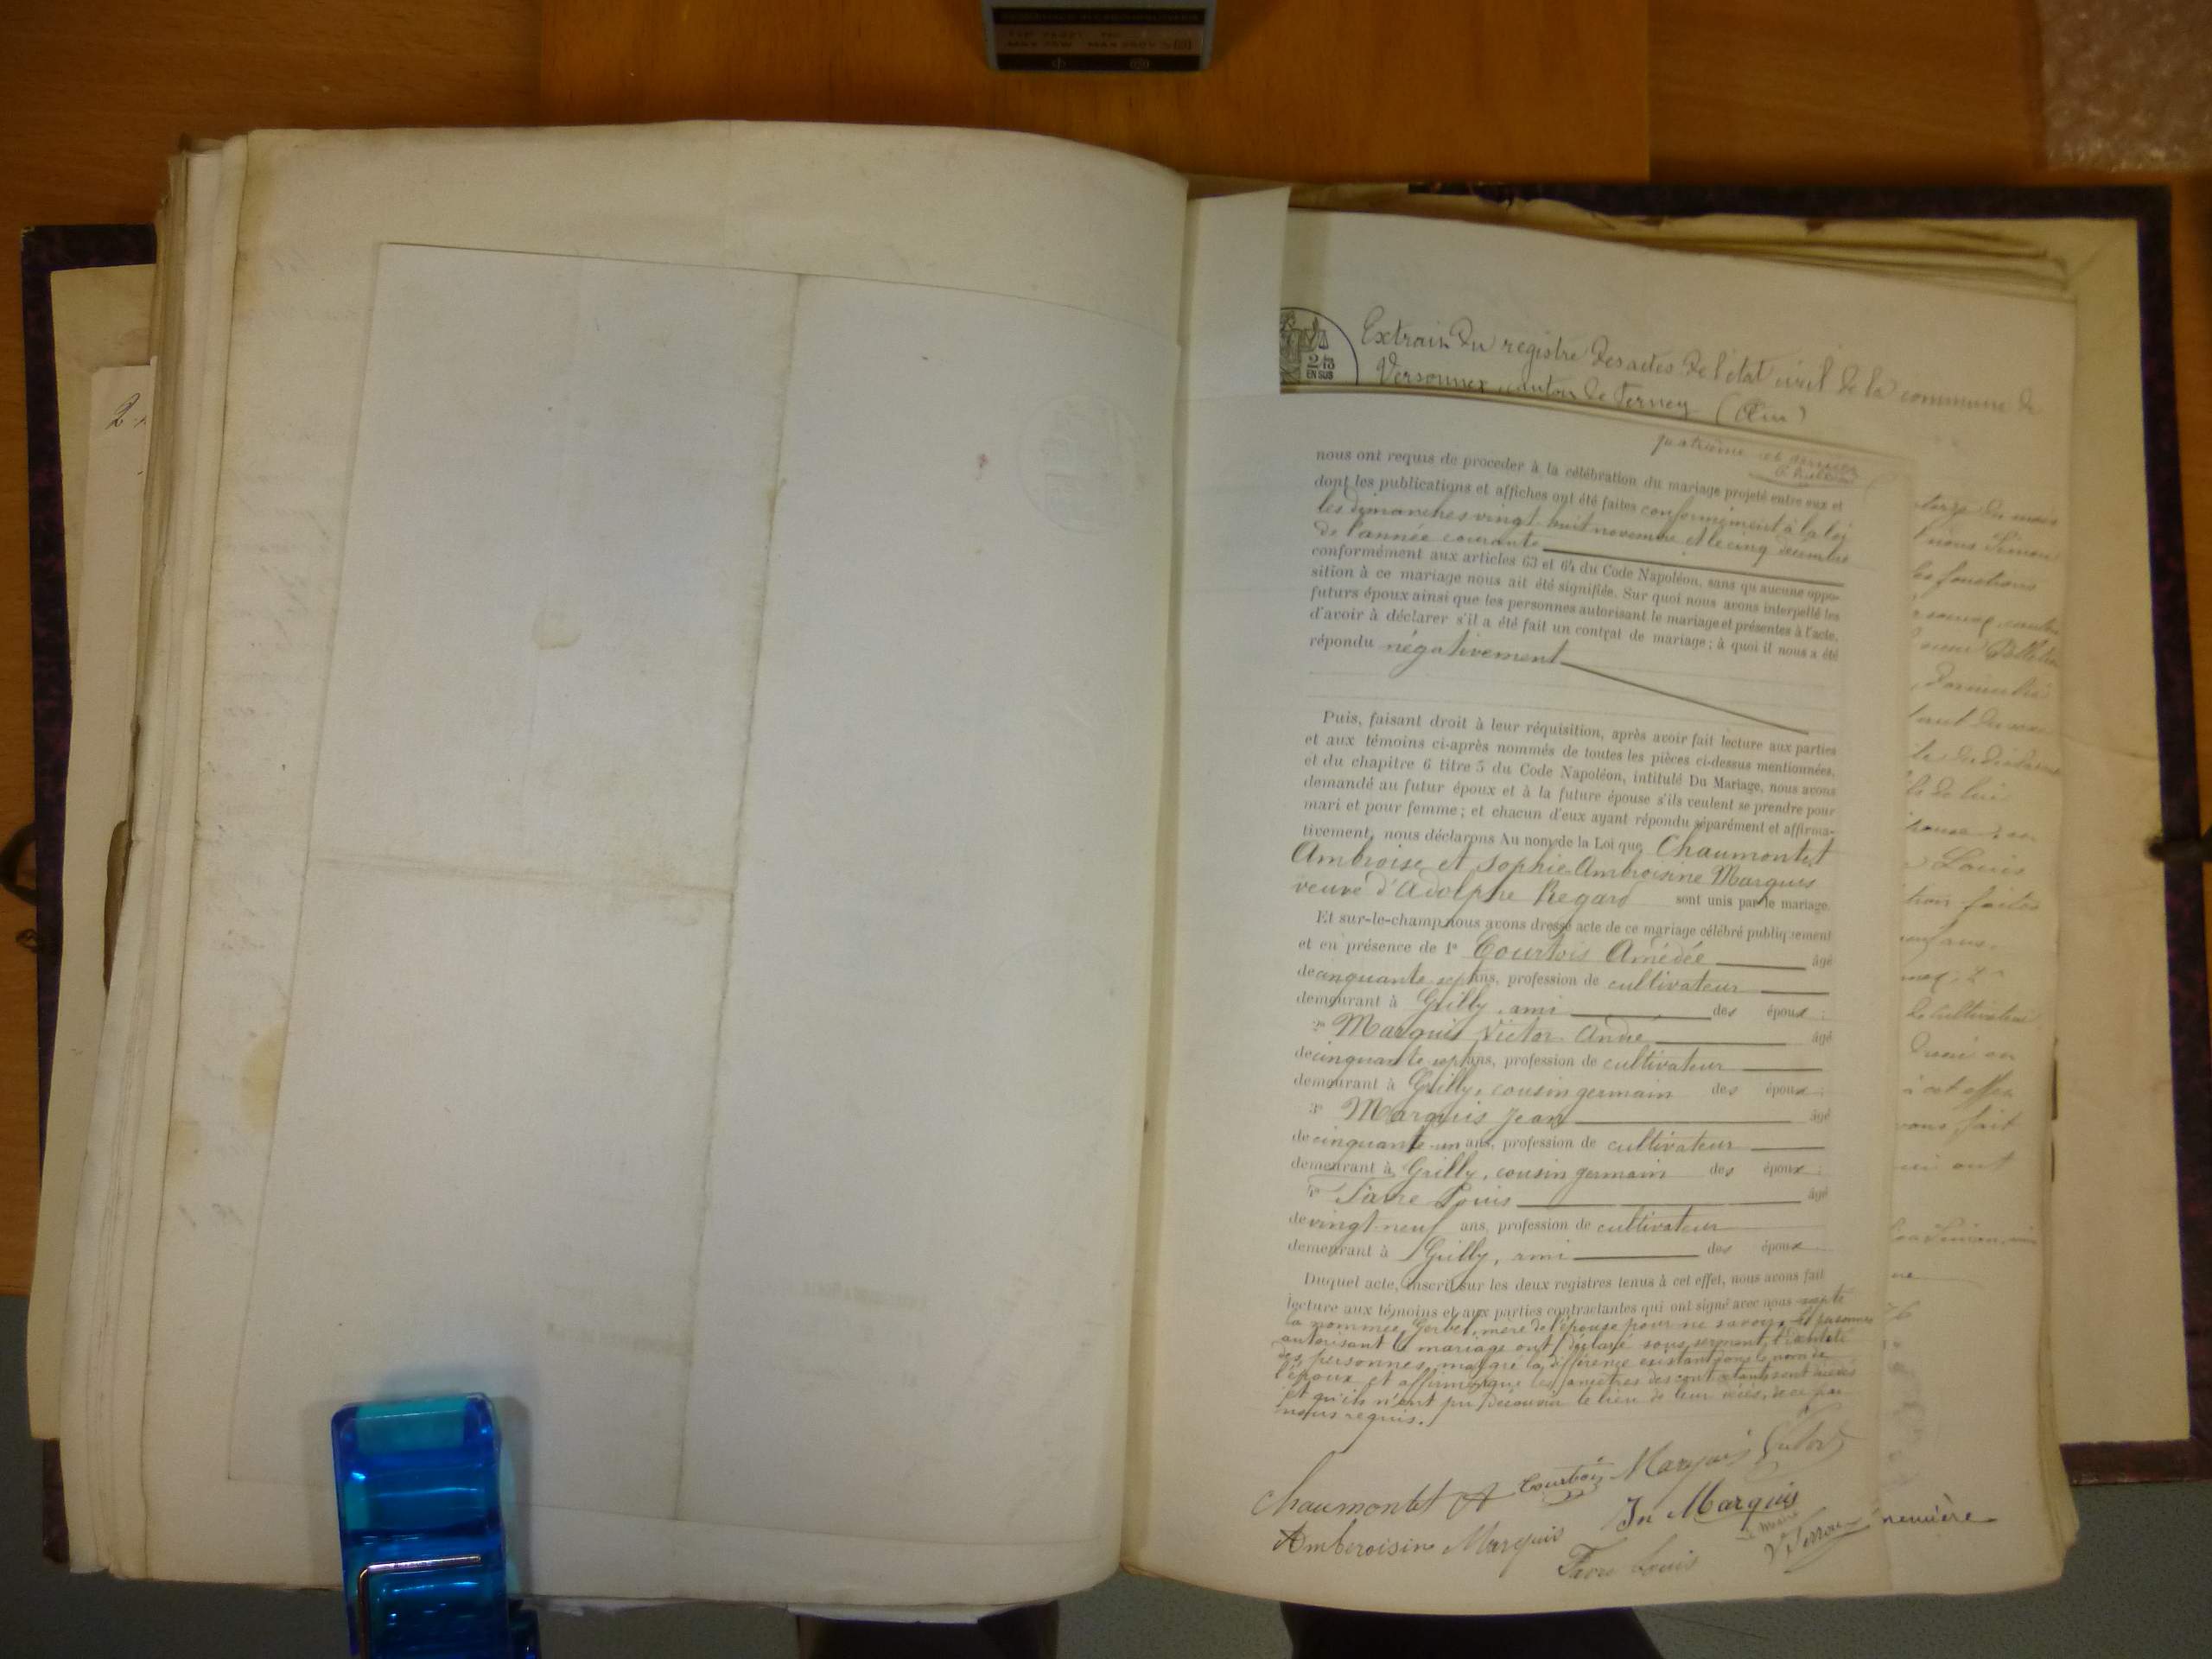 2/10
EN SUS
Extrait du registre des actes de l'état civil de la commune de
Versonnex canton de Ferney (Ain)
quatrième et dernier
nous ont requis de procéder à la célébration du mariage projeté entre eux et
dont les publications et affiches ont été faites conformément à la loi
les dimanches vingt huit novembre et le cinq décembre
de l'année courante
conformément aux articles 63 et 64 du Code Napoléon, sans qu'aucune oppo-
sition à ce mariage nous ait été signifiée. Sur quoi nous avons interpellé les
futurs époux ainsi que les personnes autorisant le mariage et présentes à l'acte,
d'avoir à déclarer s'il a été fait un contrat de mariage ; à quoi il nous a été
répondu négativement
Puis, faisant droit à leur réquisition, après avoir fait lecture aux parties
et aux témoins ci-après nommés de toutes les pièces ci-dessus mentionnées,
et du chapitre 6 titre 5 du Code Napoléon, intitulé Du Mariage, nous avons
demandé au futur époux et à la future épouse s'ils veulent se prendre pour
mari et pour femme ; et chacun d'eux ayant répondu séparément et affirma-
tivement, nous déclarons Au nom de la Loi que Chaumontet
Ambroise et Sophie Ambroisine Marquis
veuve d'Adolphe Regard sont unis par le mariage.
Et sur-le-champ nous avons dressé acte de ce mariage célébré publiquement
et en présence de 1° Courtois Amédée âgé
de cinquante sept ans, profession de cultivateur
demeurant à Grilly, ami des époux ;
2° Marquis Victor André âgé
de cinquante sept ans, profession de cultivateur
demeurant à Grilly, cousin germain des époux ;
3° Marquis Jean âgé
de cinquante un ans, profession de cultivateur
demeurant à Grilly, cousin germain des époux ;
4° Favre Louis âgé
de vingt neuf ans, profession de cultivateur
demeurant à Grilly, ami des époux
Duquel acte, inscrit sur les deux registres tenus à cet effet, nous avons fait
lecture aux témoins et aux parties contractantes qui ont signé avec nous excepté
la nommée Gerbel, mère de l'épouse pour ne savoir, les personnes
autorisant le mariage ont déclaré sous serment l'identité
des personnes malgré la différence existant dans le nom de
l'époux et affirment que les ancêtres des contractants sont décédés
et qu'ils n'ont pu découvrir le lieu de leur décès, de ce par
nous requis.
Chaumontet A Courtois Marquis Victor
Ambroisine Marquis Jn Marquis
Le Maire
Favre Louis
l nous Simon
les fonctions
, domicilié
Louis
tion faites
de cultivateur
à cet effet
vons fait
qui ont